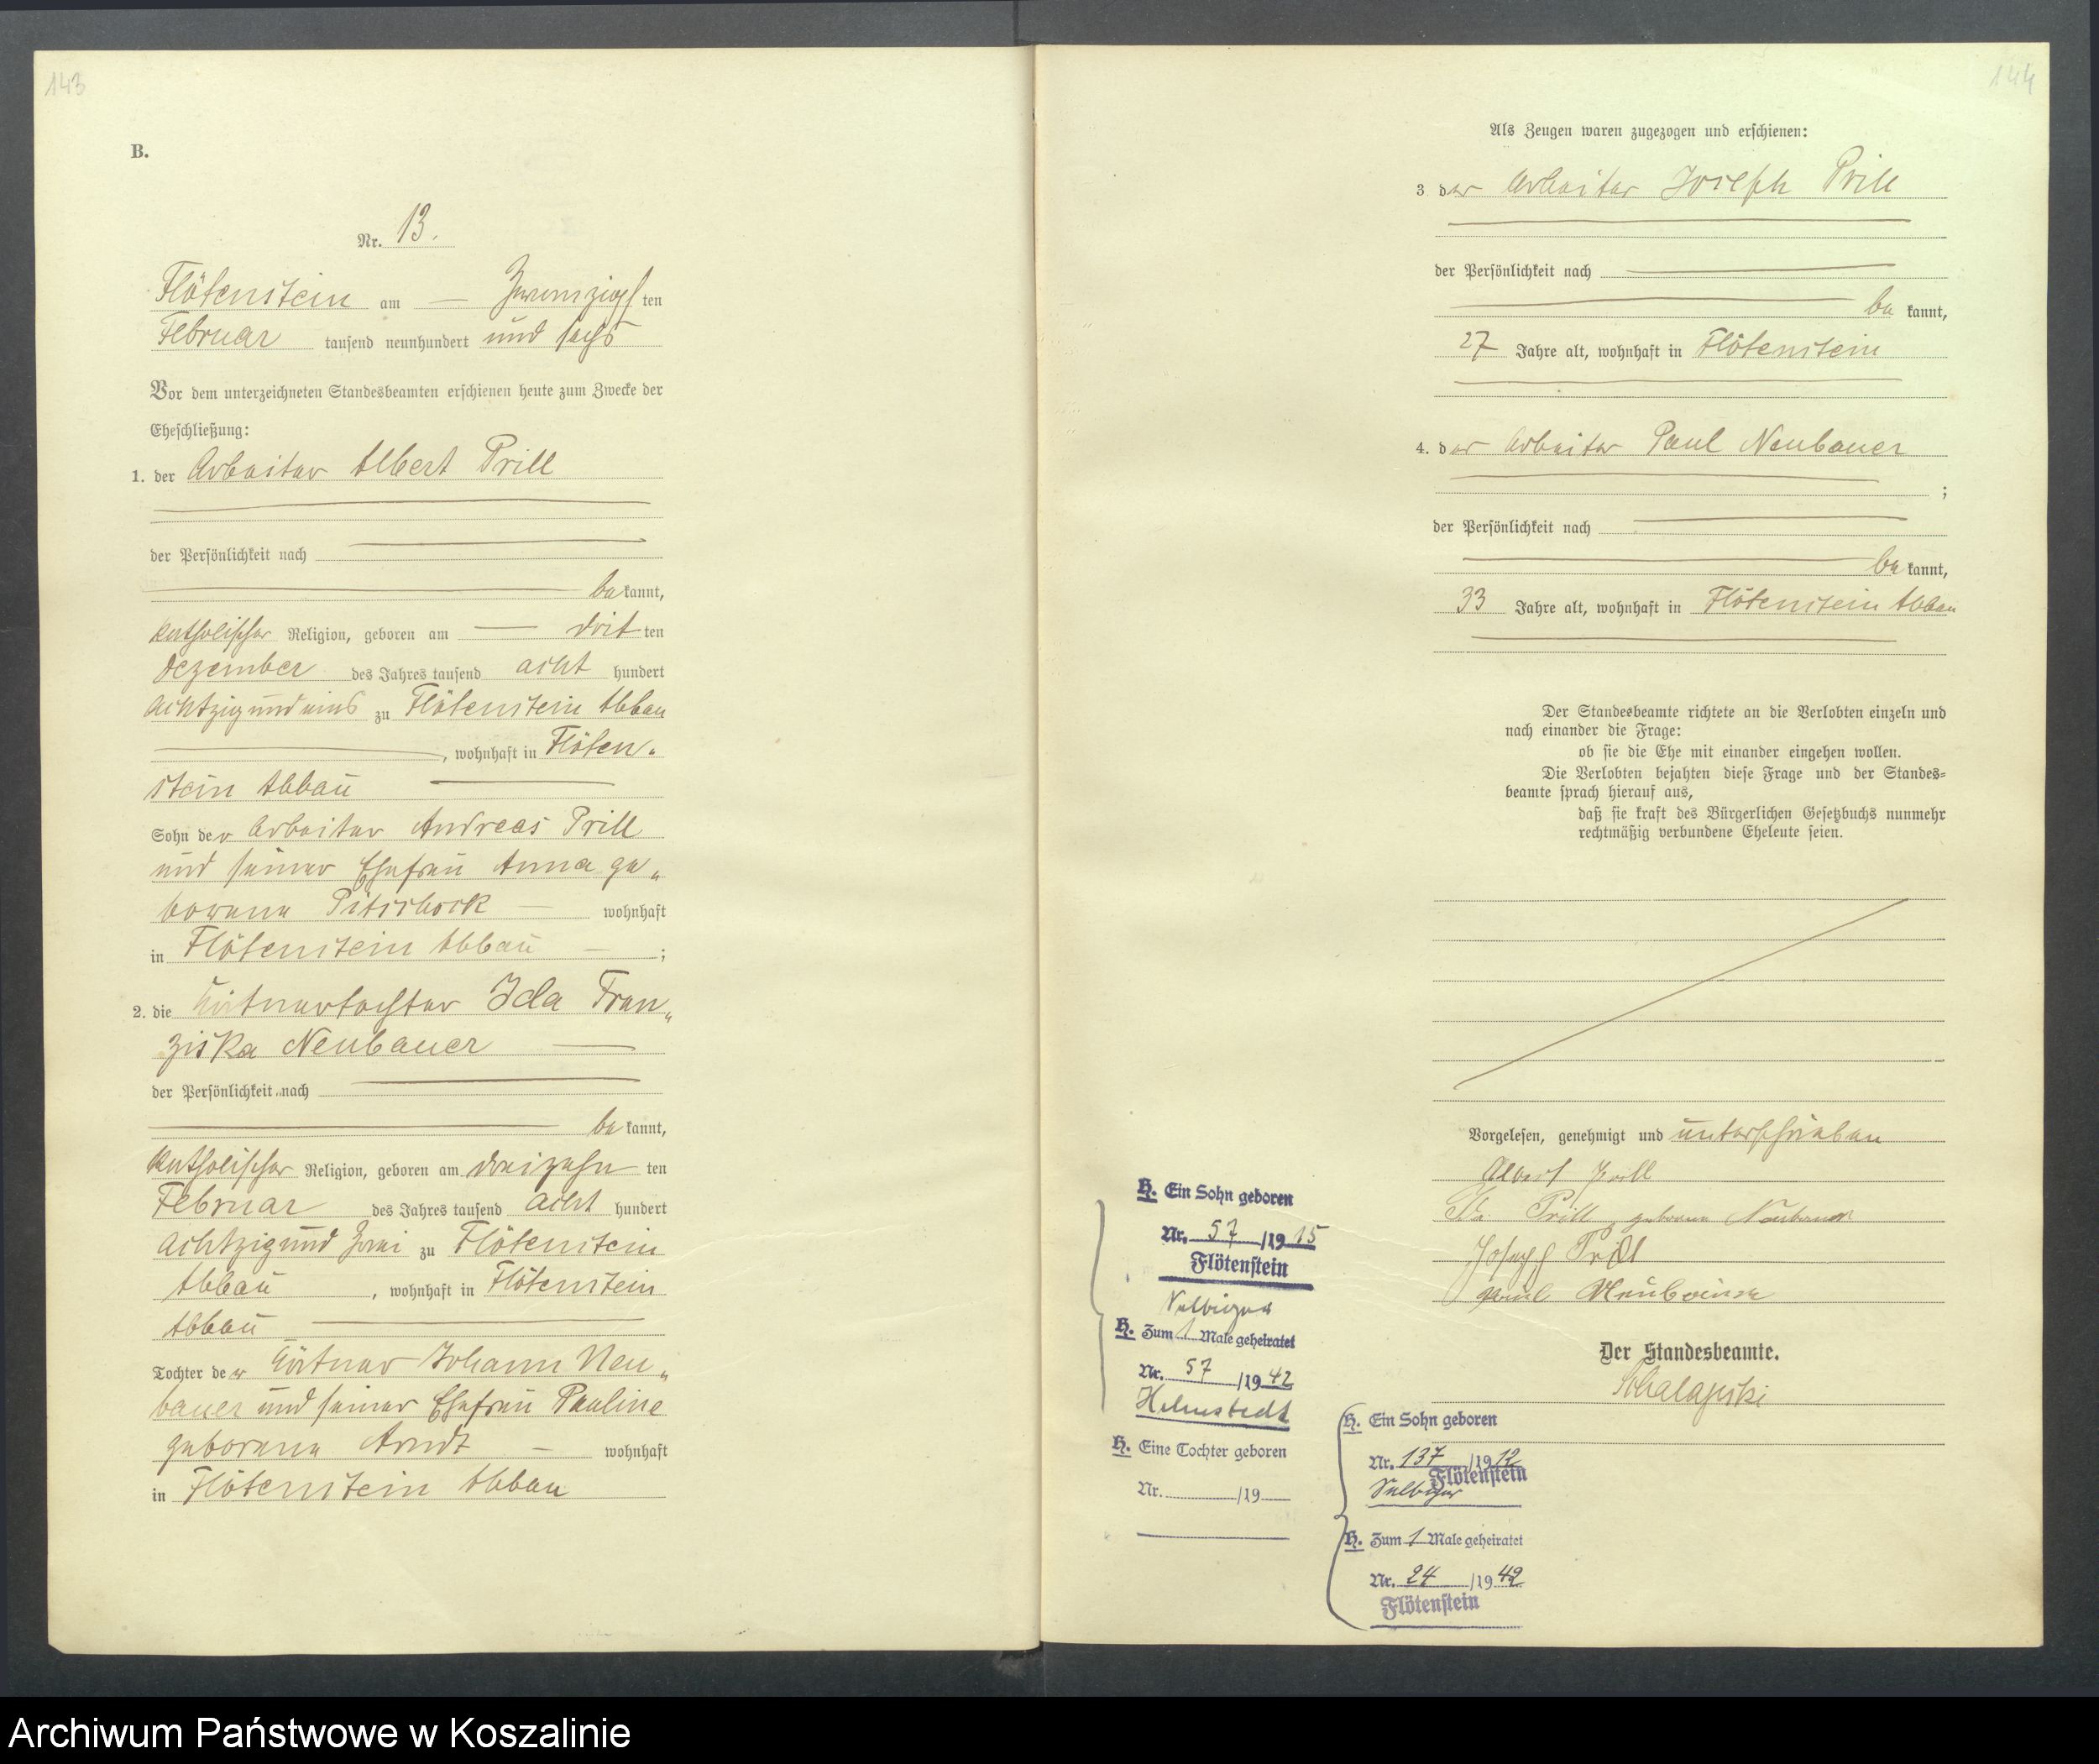 143
B.
Nr. 13.
Flötenstein am — Zwanzigsten
Februar tausend neunhundert und sechs
Vor dem unterzeichneten Standesbeamten erschienen heute zum Zwecke der
Eheschließung:
1. der Arbeiter Albert Prill
der Persönlichkeit nach
bekannt,
katholischer Religion, geboren am — dritten
Dezember des Jahres tausend acht hundert
achtzig und eins zu Flötenstein Abbau
, wohnhaft in Flöten-
stein Abbau
Sohn der Arbeiter Andreas Prill
und seiner Ehefrau Anna ge-
borene wohnhaft
in Flötenstein Abbau — ;
2. die Kätnertochter Ida Fran-
ziska Neubauer —
der Persönlichkeit nach
bekannt,
katholischer Religion, geboren am dreizehnten
Februar des Jahres tausend acht hundert
achtzig und zwei zu Flötenstein
Abbau , wohnhaft in Flötenstein
Abbau
Tochter der Kätner Johann Neu-
bauer und seiner Ehefrau Pauline
geborene Arndt — wohnhaft
in Flötenstein Abbau
144
Als Zeugen waren zugezogen und erschienen:
3 der Arbeiter Joseph Prill
der Persönlichkeit nach
bekannt,
27 Jahre alt, wohnhaft in Flötenstein
4. der Arbeiter Paul Neubauer
;
der Persönlichkeit nach
bekannt,
33 Jahre alt, wohnhaft in Flötenstein Abbau
Der Standesbeamte richtete an die Verlobten einzeln und
nach einander die Frage:
ob sie die Ehe mit einander eingehen wollen.
Die Verlobten bejahten diese Frage und der Standes-
beamte sprach hierauf aus,
daß sie kraft des Bürgerlichen Gesetzbuchs nunmehr
rechtmäßig verbundene Eheleute seien.
Vorgelesen, genehmigt und unterschrieben
Albert Prill
Ida Prill, geborene Neubauer
Joseph Prill
Paul Neubauer
Der Standesbeamte.
H. Ein Sohn geboren
Nr. 57 /1915
Flötenstein
H. Zum 1 Male geheiratet
Nr. 57 /1942
Helmstedt
H. Eine Tochter geboren
Nr. /19
H. Ein Sohn geboren
Nr. 137 /1912
Flötenstein
H. Zum 1 Male geheiratet
Nr. 24 /1942
Flötenstein
Archiwum Państwowe w Koszalinie